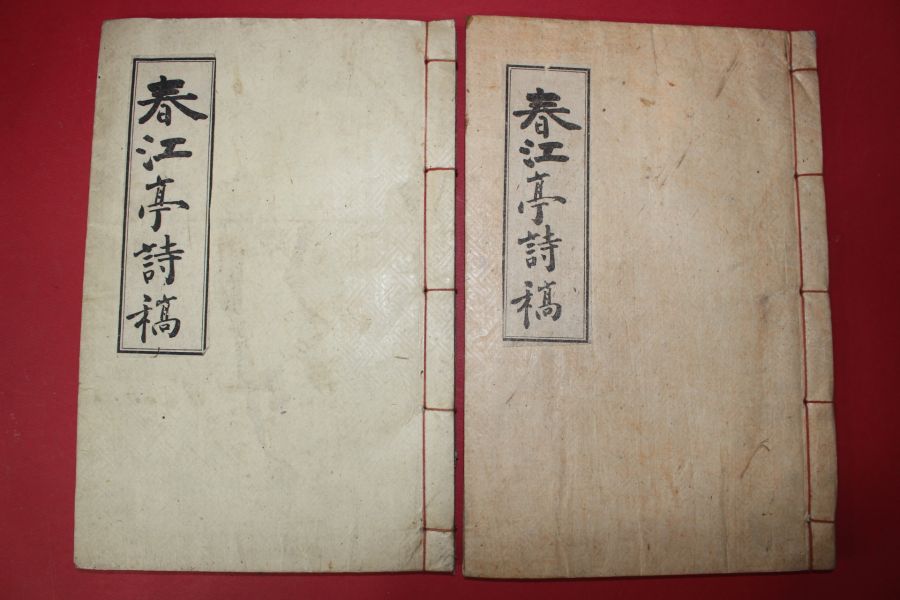 春江亭詩稿
春江亭詩稿